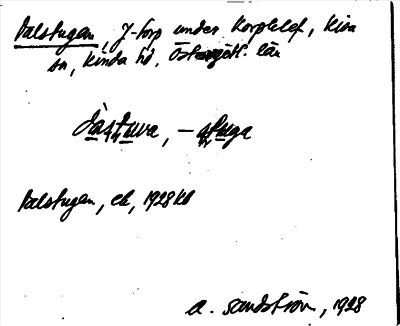 Dalstugan, J-torp under Korpklef, Kisa
sn, Kinda hd, Östergötl. län
dàstuva, -stuga
Dalstugan, ek, 1928 kb
A. Sandström, 1928